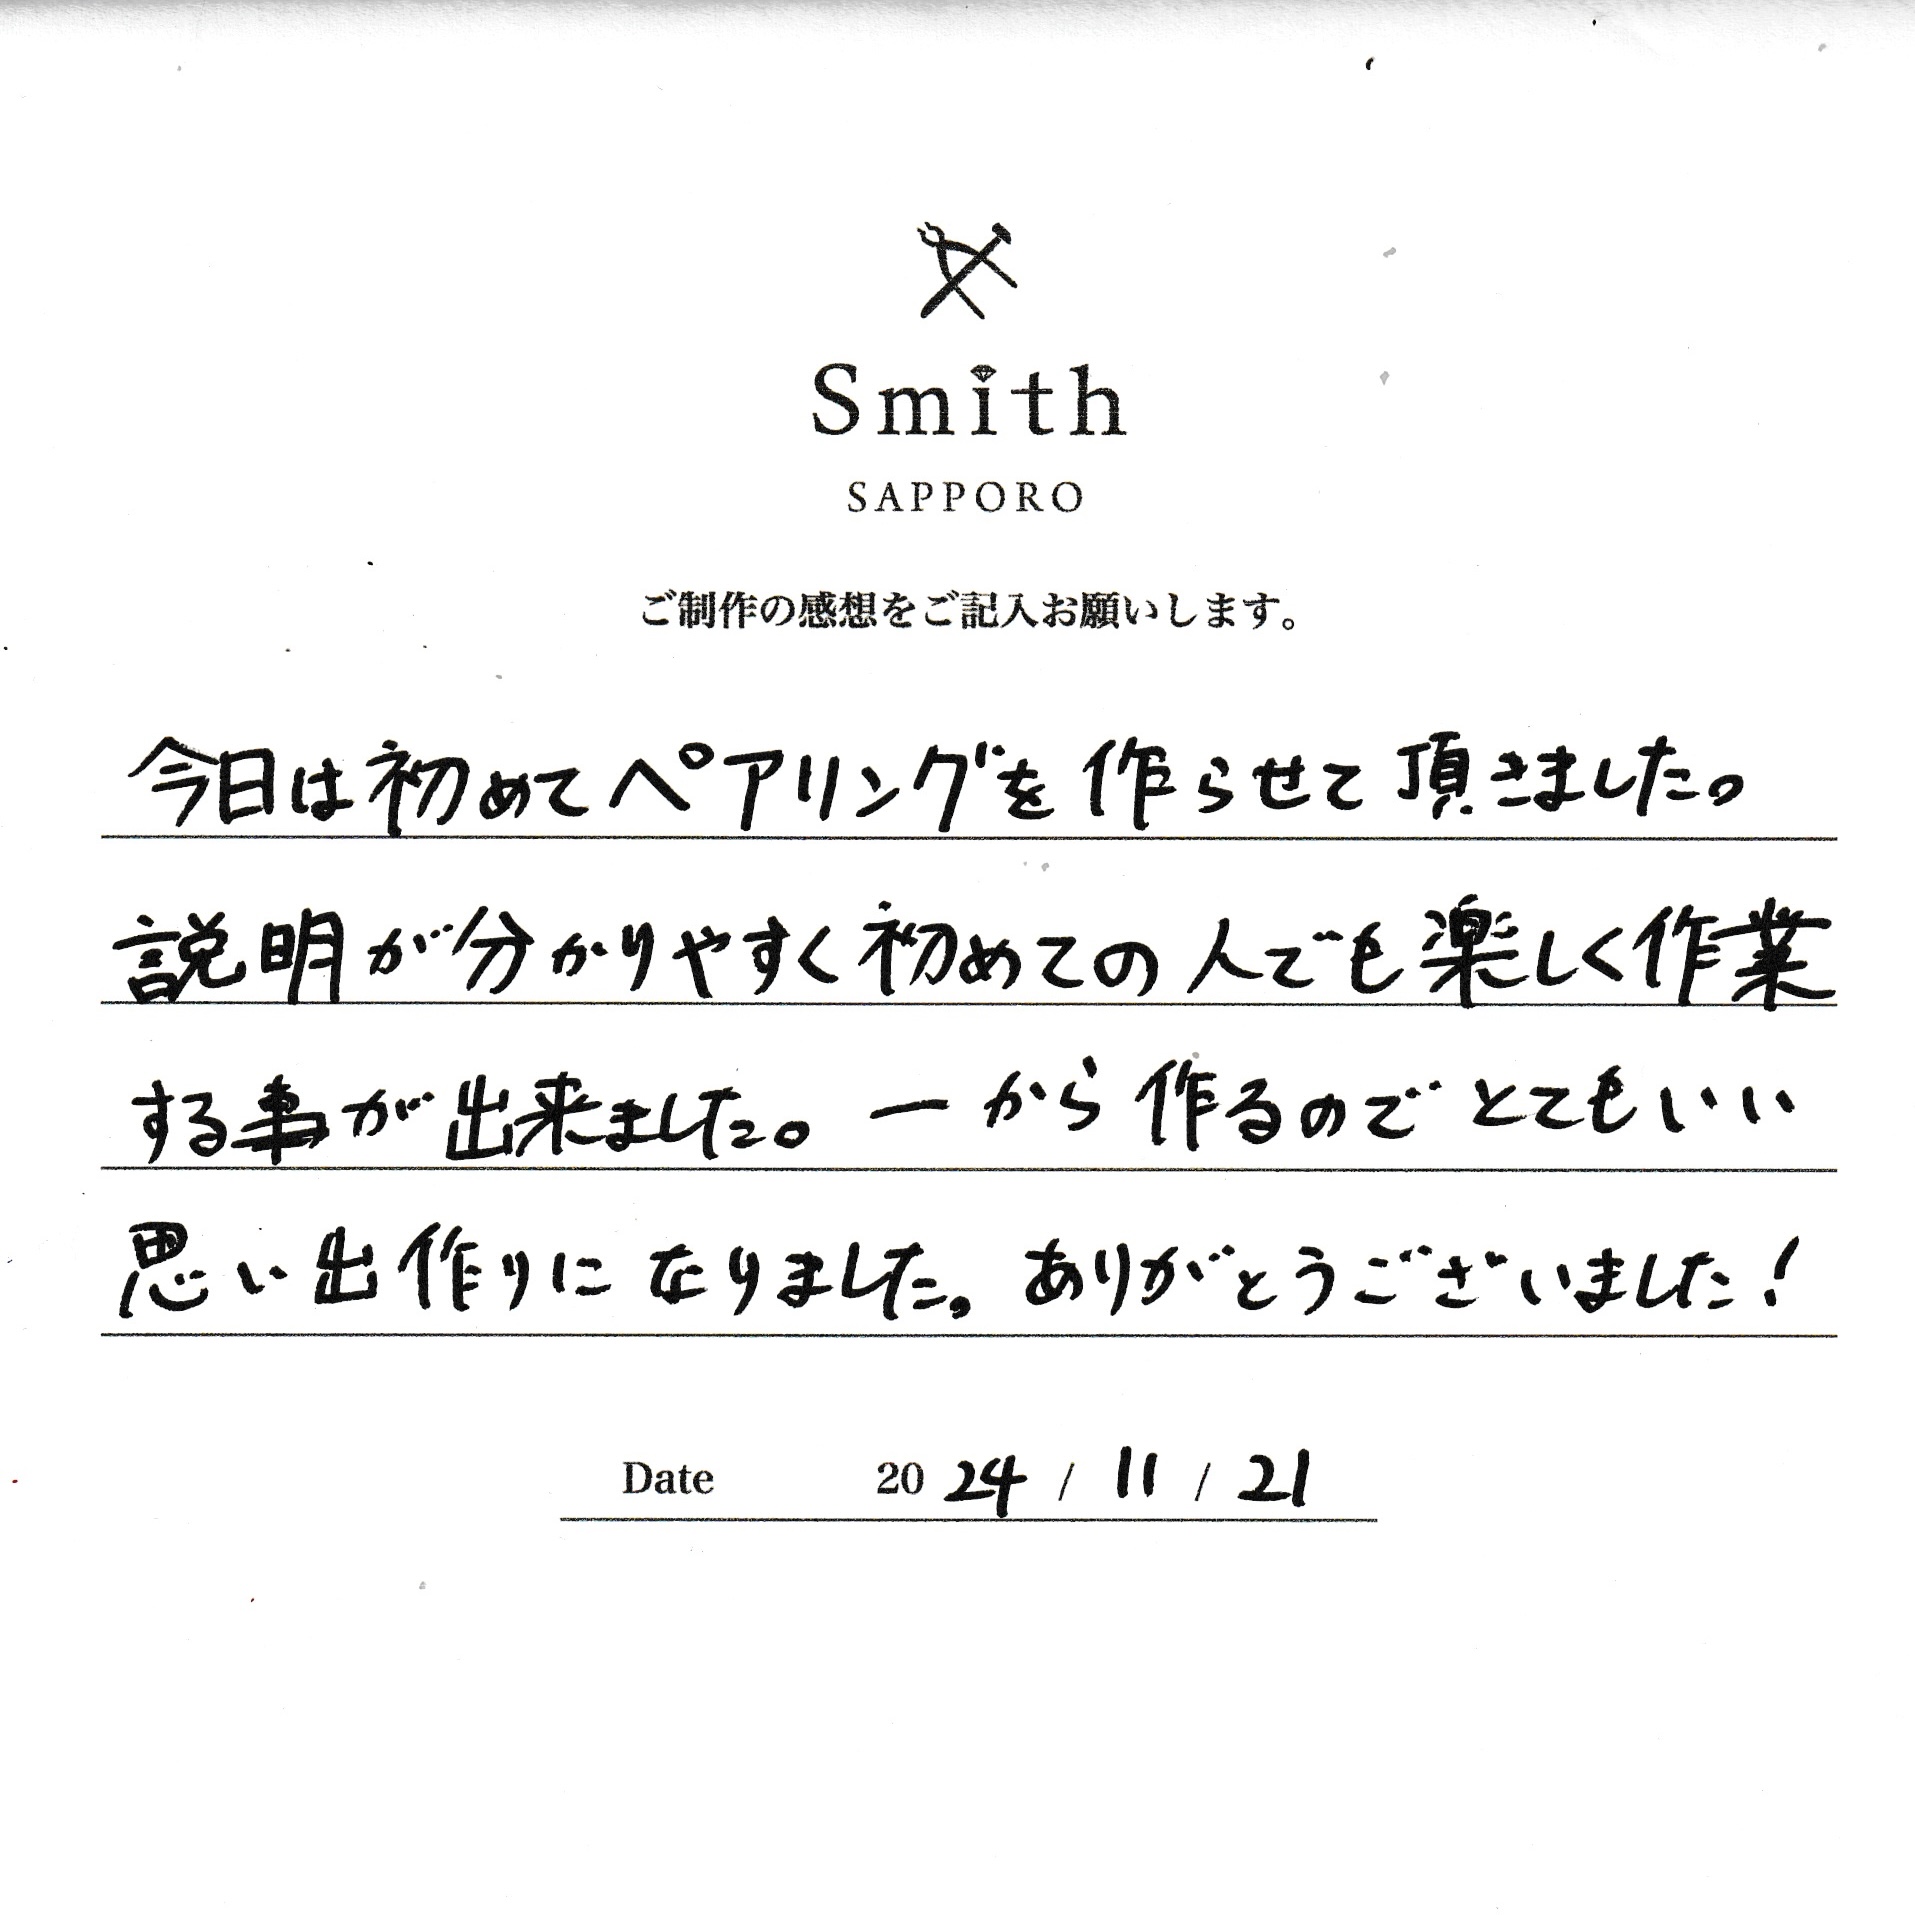 Smith
SAPPORO
ご制作の感想をご記入お願いします。
今日は初めてペアリングを作らせて頂きました。
説明が分かりやすく初めての人でも楽しく作業
する事が出来ました。一から作るのでとてもいい
思い出作りになりました。ありがとうございました!
Date 2024 / 11 / 21